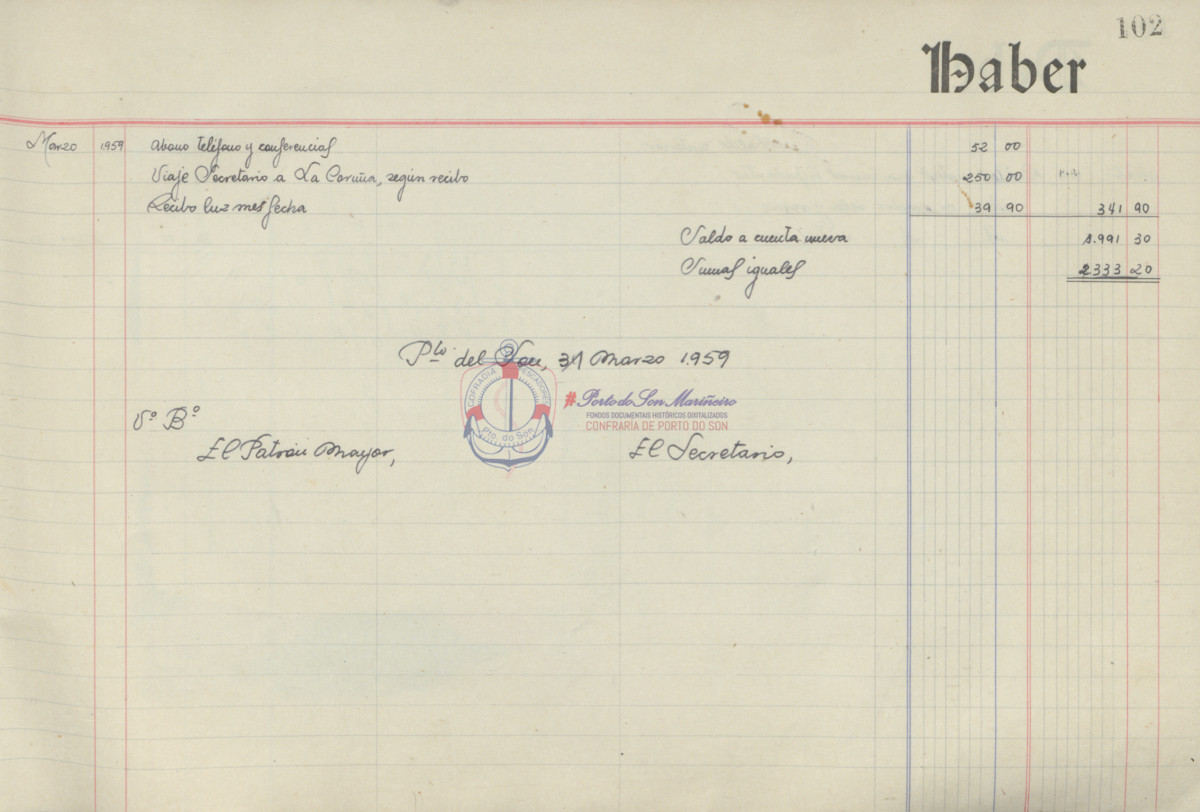 102
Haber
Marzo 1959 abono teléfono y conferencias 52 00
Viaje Secretario a La Coruña, según recibo 250 00
Recibo luz mes fecha 39 90 341 90
Saldo a cuenta nueva 1.991 30
Sumas iguales 2333 20
Pto del Son, 31 Marzo 1.959
COFRADIA PESCADORES
Pto. do Son
#Porto do Son Mariñeiro
FONDOS DOCUMENTAIS HISTÓRICOS DIXITALIZADOS
CONFRARÍA DE PORTO DO SON
Vº Bº
El Patrón Mayor,
El Secretario,